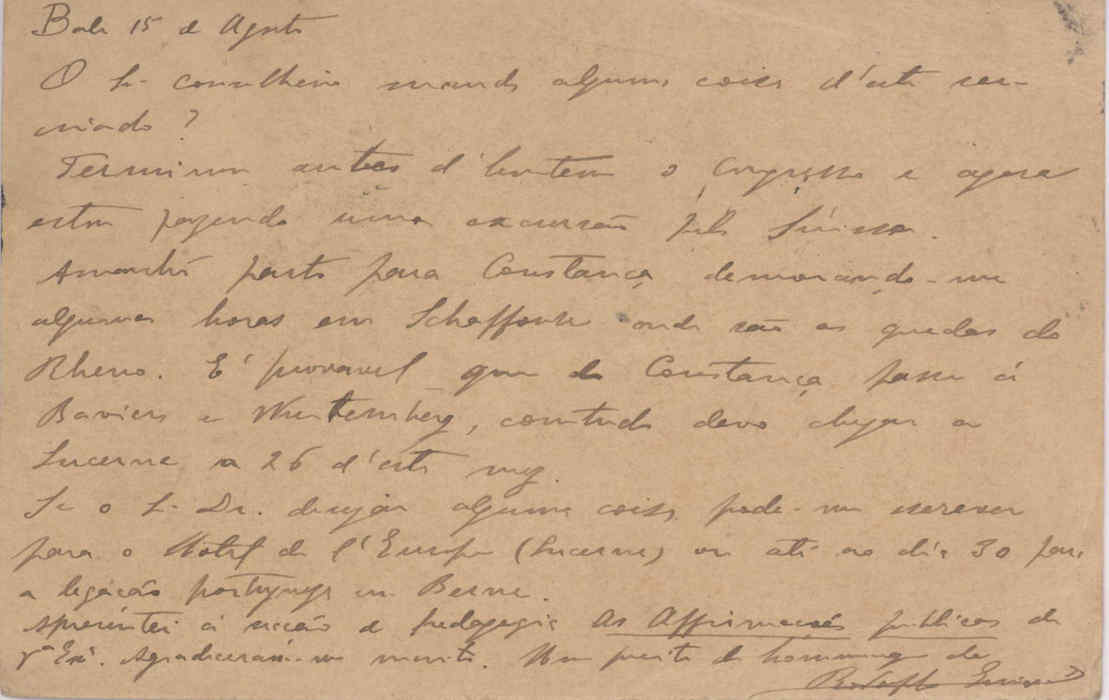 Bale 15 de Agosto
O Sr. conselheiro manda alguma coisa d'este seu
criado?
Terminou antes d'hontem o Congresso e agora
estou fazendo uma excursão pela Suissa.
Amanhã parto para Constança demorando-me
algumas horas em Schaffouse onde são as quedas do
Rheno. É provavel que de Constança passe á
Baviera e Wurtemberg, comtudo devo chegar a
Lucerne a 26 d'este mez.
Se o Sr. Dr. desejar alguma coisa pode-me escrever
para o Hotel de l'Europe (Lucerne) ou até ao dia 30 para
a legação portugueza em Berne.
Apresentei á secção de pedagogia As Affirmações publicas de
Vª Exª. Agradeceram-me muito. Um preito de homenagem de